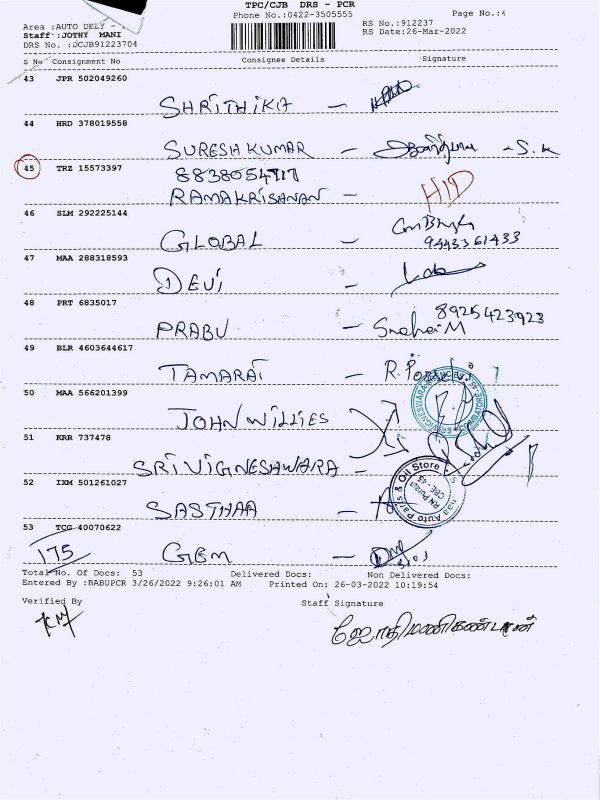 TPC/CJB DRS - PCR
Area :AUTO DELY -
Phone No.:0422-3505555
Page No.:4
Staff :JOTHY MANI
RS No.:912237
DRS No. :DCJB91223704
RS Date:26-Mar-2022
S No Consignment No Consignee Details Signature
43 JPR 502049260
SHRITHIKA -
44 HRD 378019558
SURESH KUMAR - - S. K
45 TRZ 15573397
RAMAKRISHNAN - HID
46 SLM 292225144
GLOBAL -
9443361433
47 MAA 288318593
DEVI -
48 PRT 6835017
8925423923
PRABU -
49 BLR 4603644617
TAMARAI - R.
50 MAA 566201399
JOHN WILLIES
51 KRR 737478
SRI VIGNESHWARA -
52 IXM 501261027
SASTHAA -
Auto Parts & Oil Store
CBE - 45
53 TCG 40070622
175 GBM -
Total No. Of Docs: 53 Delivered Docs: Non Delivered Docs:
Entered By :BABUPCR 3/26/2022 9:26:01 AM Printed On: 26-03-2022 10:19:54
Verified By Staff Signature
ஜோதிமணிகண்டன்